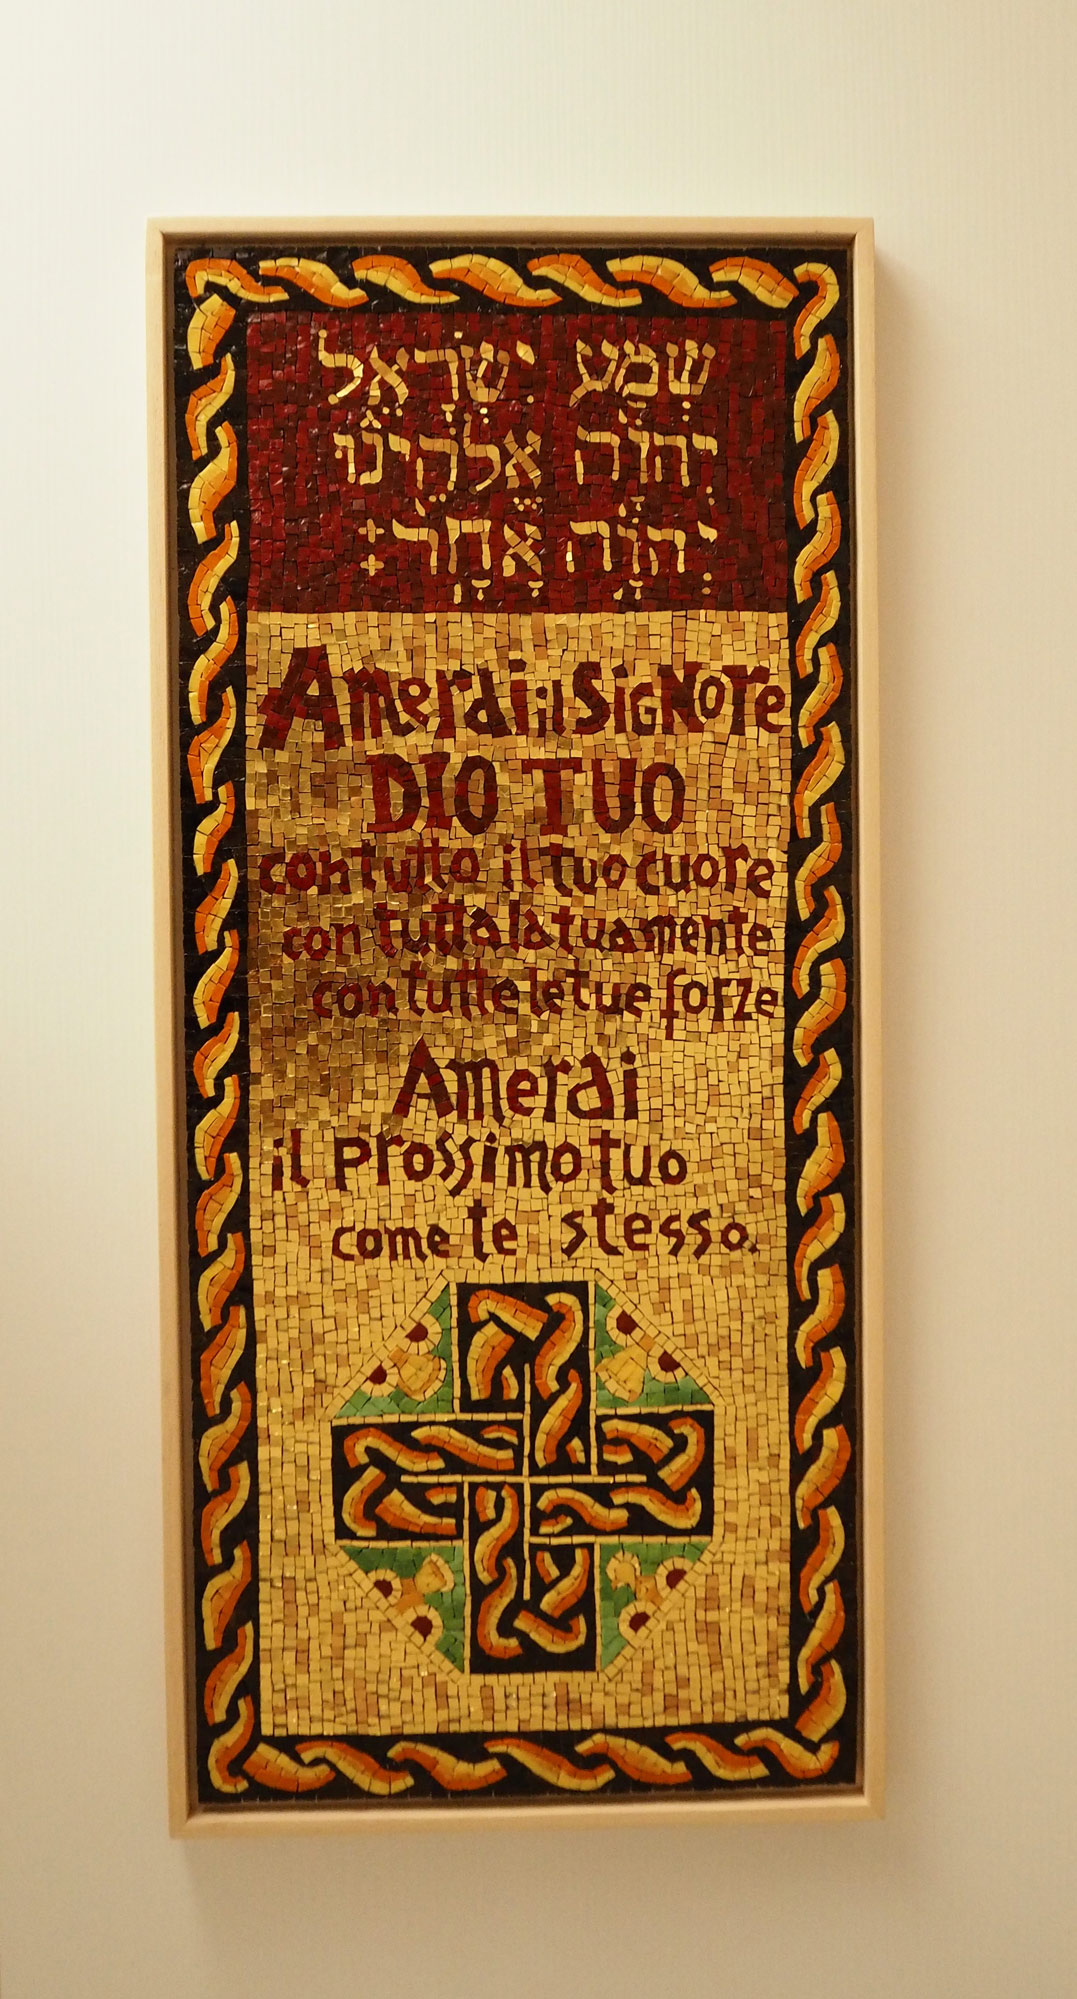 שְׁמַע יִשְׂרָאֵל
יְהוָה אֱלֹהֵינוּ
יְהוָה אֶחָד׃
Amerai il SigNore
DIO TUO
con tutto il tuo cuore
con tutta la tua mente
con tutte le tue forze
Amerai
il prossimo tuo
come te stesso.